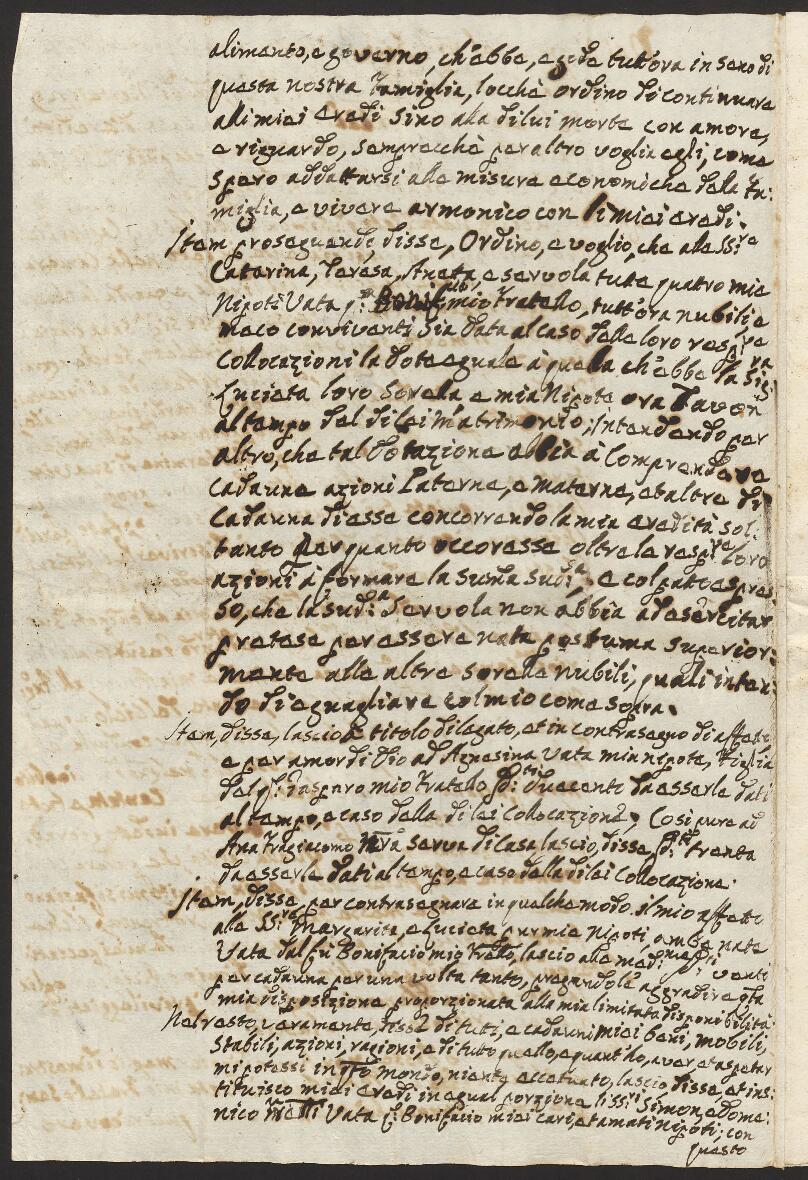 alimento, e governo, ch'ebbe, e gode tutt'ora in seno di
questa nostra Famiglia, locchè ordino di continuare
alli miei eredi sino alla di lui morte con amore,
e riguardo, semprecchè per altro voglia egli, come
spero addattarsi alle misure economiche dela Fa:
miglia, e vivere armonico con li miei eredi.
Item proseguendo, disse, Ordino, e voglio, che alle SS:re
Catterina, Teresa, Aneta, e Servola tutte quattro mie
Nipoti Vata q: Bonif:io mio Fratello, tutt'ora nubili, e
meco conviventi sia data al caso delle loro resp:ve
Collocazioni la dote eguale à quella ch'ebbe la Sig:ra
Lucieta loro Sorella e mia Nipote ora Tavon
al tempo del di lei Matrimonio; Intendendo per
altro, che tal Dotazione abbia à Comprendere
cadaune azioni Paterne, e Materne, et altre di
Cadauna di esse concorrendo la mia eredità sol:
tanto per quanto occoresse oltre le resp:ve loro
azioni à formare la suma sud:a, e col patto espres:
so, che la sud:a Servola non abbia ad esercitar
pretese per essere nata postuma superior:
mente alle altre sorelle nubili, quali inten:
do di eguagliare col mio come sopra.
Item, disse, lascio à titolo di legato, et in contrasegno di affetto
e per amor di Dio ad Agnesina Vata mia nipote, Figlia
del q: Gasparo mio Fratello D:ti Ducenti da esserle dati
al tempo, e caso della di lei Collocazione; Così pure ad
Ana Fragiacomo serva di Casa lascio, disse, D:ti trenta
da esserle dati al tempo, e caso della di lei Collocazione.
Item, disse, per contrasegnare in qualche modo il mio affetto
alle SS:re Margarita, e Lucieta pur mie Nipoti, ambe nate
Vata dal fù Bonifacio mio Frello, lascio alle med:me D:ti venti
per cadauna per una volta tanto, pregandole aggradire qta
mia disposizione proporzionata alla mia limitata disponibilità.
Nel resto, veramente, disse, di tuti, e cadauni miei beni, mobili,
stabili, azioni, ragioni, e di tutto quello, e quanto, aver et aspetar
mi potessi in qsto mondo, niente eccetuato, lascio disse, et ins:
tituisco miei eredi in egual porzione li SS:ri Simon, e Dome:
nico Frelli Vata q: Bonifacio miei cari, et amati nipoti; con
questo